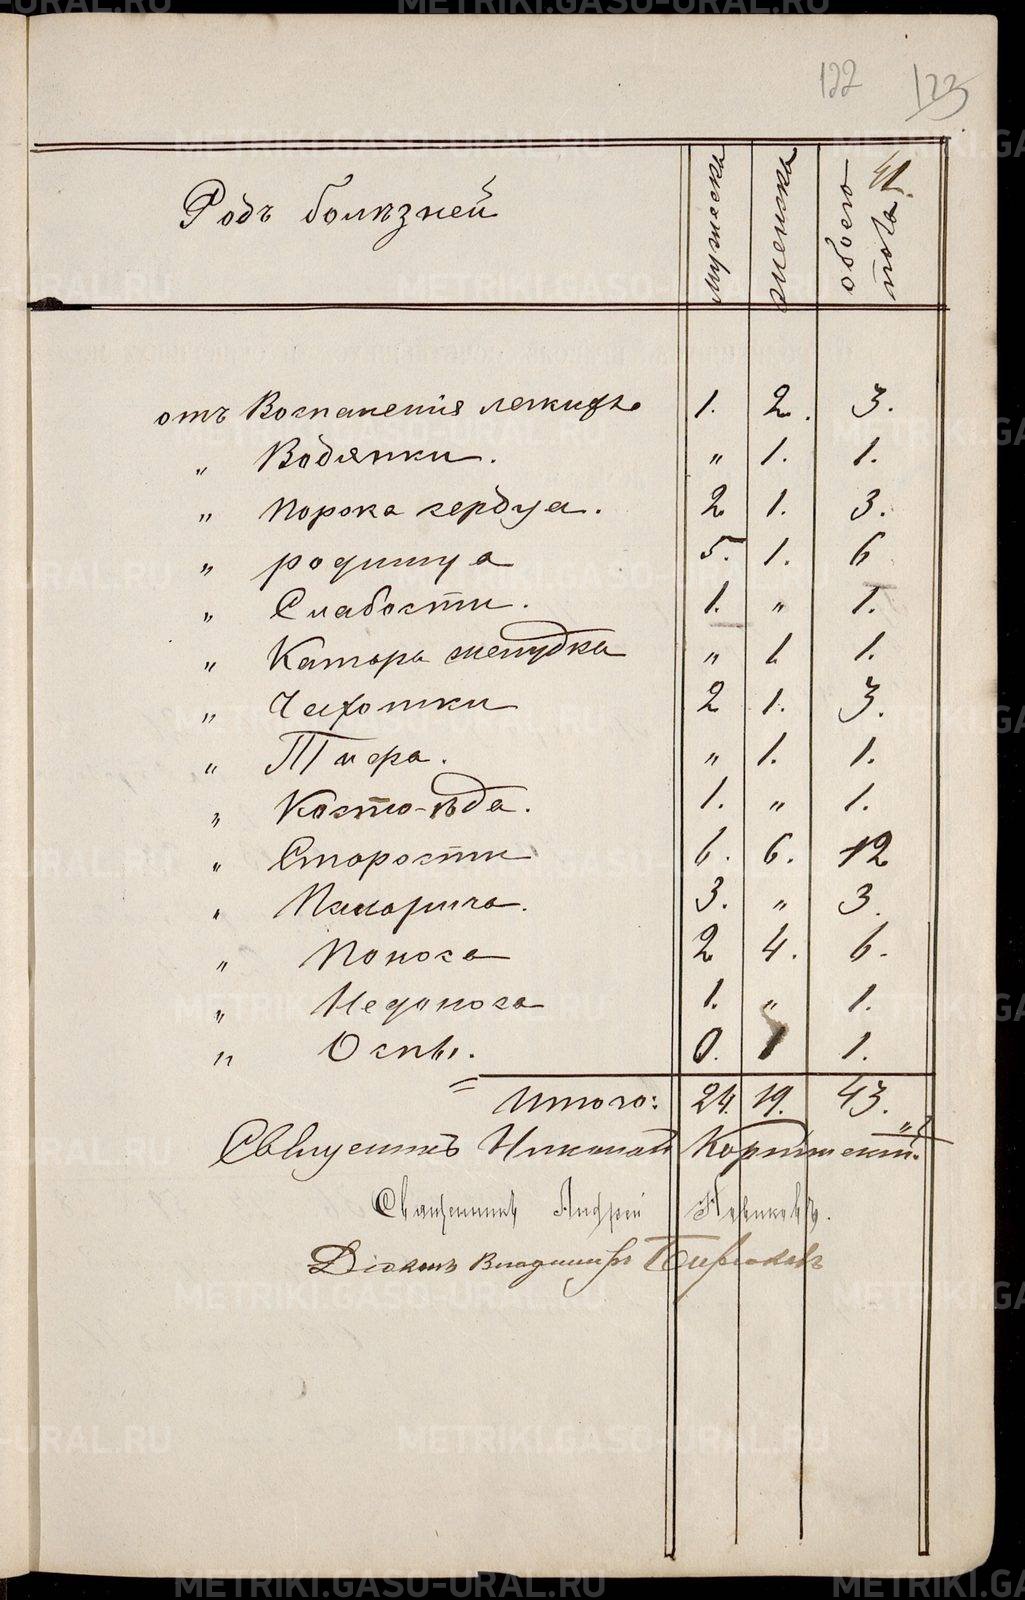 122 123
Родъ болѣзней мужеска женска обоего пола 41.
отъ Воспаленія легкихъ 1. 2. 3.
„ Водянки. „ 1. 1.
„ Порока сердца. 2 1. 3.
„ родимца 5. 1. 6
„ Слабости. 1. „ 1.
„ Катара желудка „ 1 1.
„ Чахотки 2 1. 3.
„ Тифа. „ 1. 1.
„ Косто-ѣда. 1. „ 1.
„ Старости 6. 6. 12
„ Паларича. 3. „ 3.
„ Поноса 2 4. 6.
„ Недоноса 1. „ 1.
„ Оспы. 0. 1 1.
Итого: 24. 19. 43.
Священникъ Николай
Священникъ Андрей Новиковъ.
Діаконъ Владиміръ Бирюковъ
METRIKI.GASO-URAL.RU